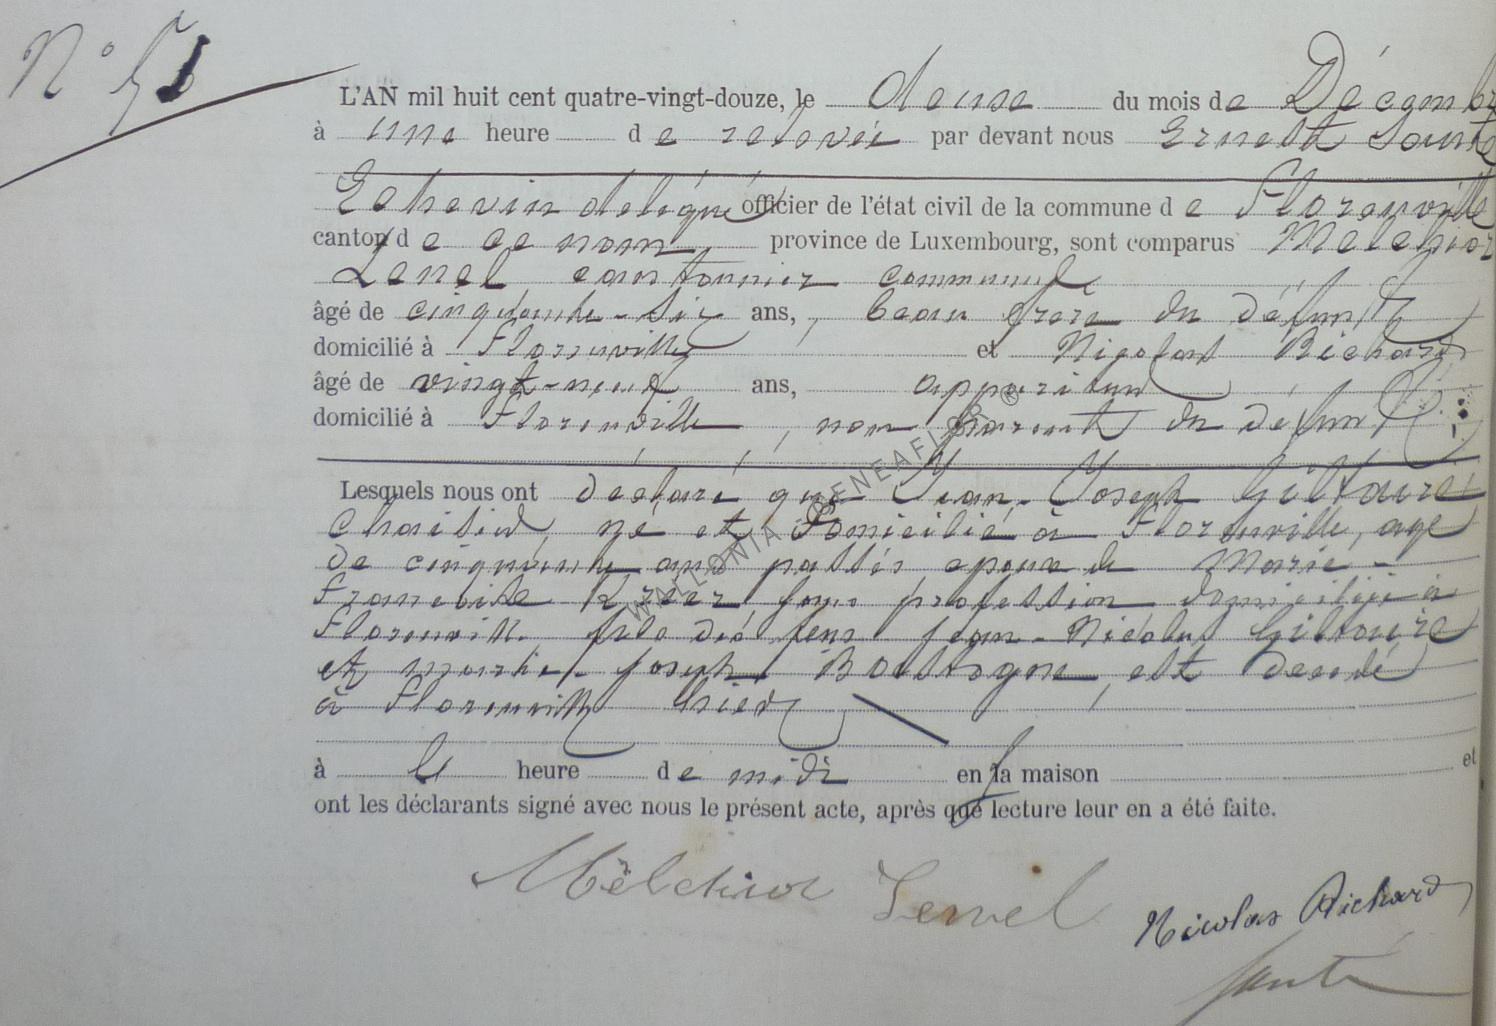 N° 51
L'AN mil huit cent quatre-vingt-douze, le douse du mois de Décemb
à une heure de relevée par devant nous Ernest
Echevin delégué officier de l'état civil de la commune de Florenville
canton de ce nom, province de Luxembourg, sont comparus Melchior
Lenel cantonnier communal
âgé de cinquante-six ans, beau frere du défunt
domicilié à Florenville et Nicolas Richard
âgé de vingt-neuf ans, appariteur
domicilié à Florenville, non parent du défunt
Lesquels nous ont déclaré que Jean-Joseph Giltaire
né et domicilié à Florenville, agé
de cinquante ans passés, epoux de Marie-
Francoise sans profession domiciliée à
Florenville fils des feus Jean-Nicolas Giltaire
et Marie-Joseph est decedé
à Florenville hier
à heure de midi en sa maison et
ont les déclarants signé avec nous le présent acte, après que lecture leur en a été faite.
WALLONIA GENEAFLOR ©
Melchior Lenel
Nicolas Richard